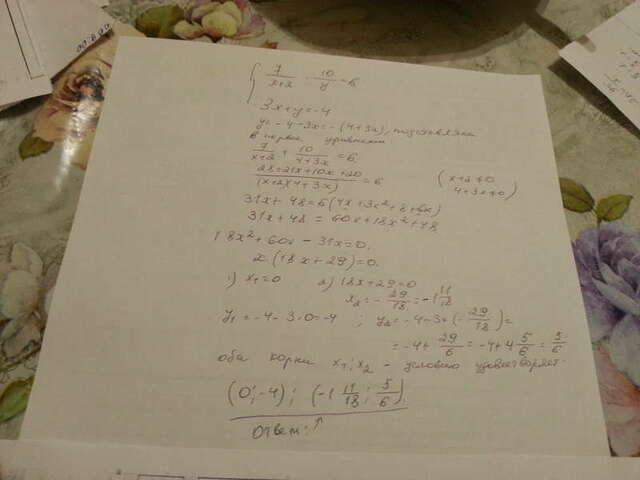 { 7/(x+2) - 10/y = 6
3x+y=-4
y=-4-3x=-(4+3x), подставляем
в первое уравнение
7/(x+2) + 10/(4+3x) = 6
(28+21x+10x+20)/((x+2)(4+3x)) = 6 (x+2≠0
4+3x≠0)
31x+48=6(4x+3x²+8+6x)
31x+48=60x+18x²+48
18x²+60x-31x=0.
x(18x+29)=0.
1) x₁=0 2) 18x+29=0
x₂=-29/18=-1 11/18
y₁=-4-3·0=-4 ; y₂=-4-3·(-29/18)=
=-4+29/6=-4+4 5/6=5/6
оба корни x₁; x₂ - условию удовлетворяет.
(0;-4); (-1 11/18; 5/6).
Ответ: ↑